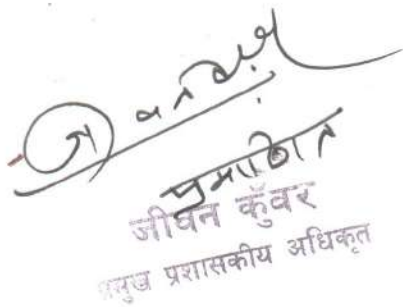 प्रमाणित
जीवन कुँवर
प्रमुख प्रशासकीय अधिकृत